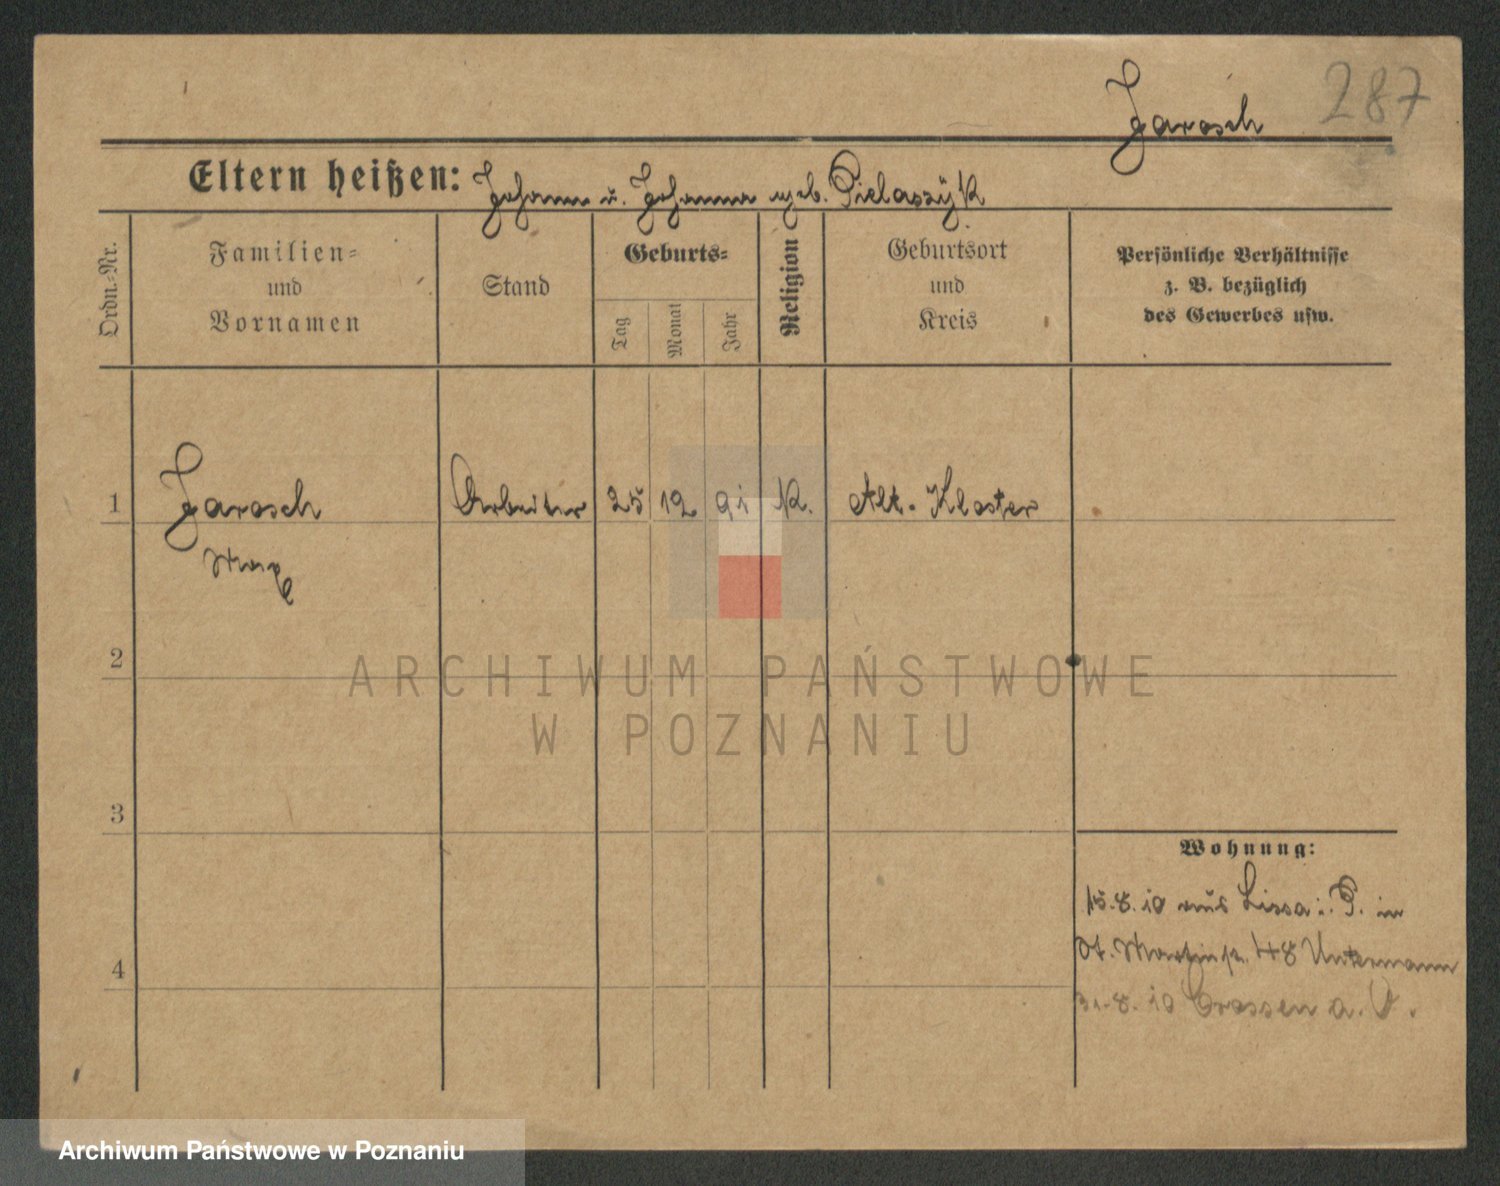 Jarosch 287
Eltern heißen: Johann u. Johanna geb. Pielaszÿk
Ordn.-Nr.
Familien-
und
Vornamen
Stand
Geburts-
Tag
Monat
Jahr
Religion
Geburtsort
und
Kreis
Persönliche Verhältnisse
z. B. bezüglich
des Gewerbes usw.
1 Jarosch Arbeiter 25 12 91 K. Alt-Kloster
Max
ARCHIWUM PAŃSTWOWE
W POZNANIU
2
3
4
Wohnung:
15.8.10 aus Lissa i. P. in
St. Martinstr. 48 Untermann
31.8.10 Crossen a. O.
Archiwum Państwowe w Poznaniu